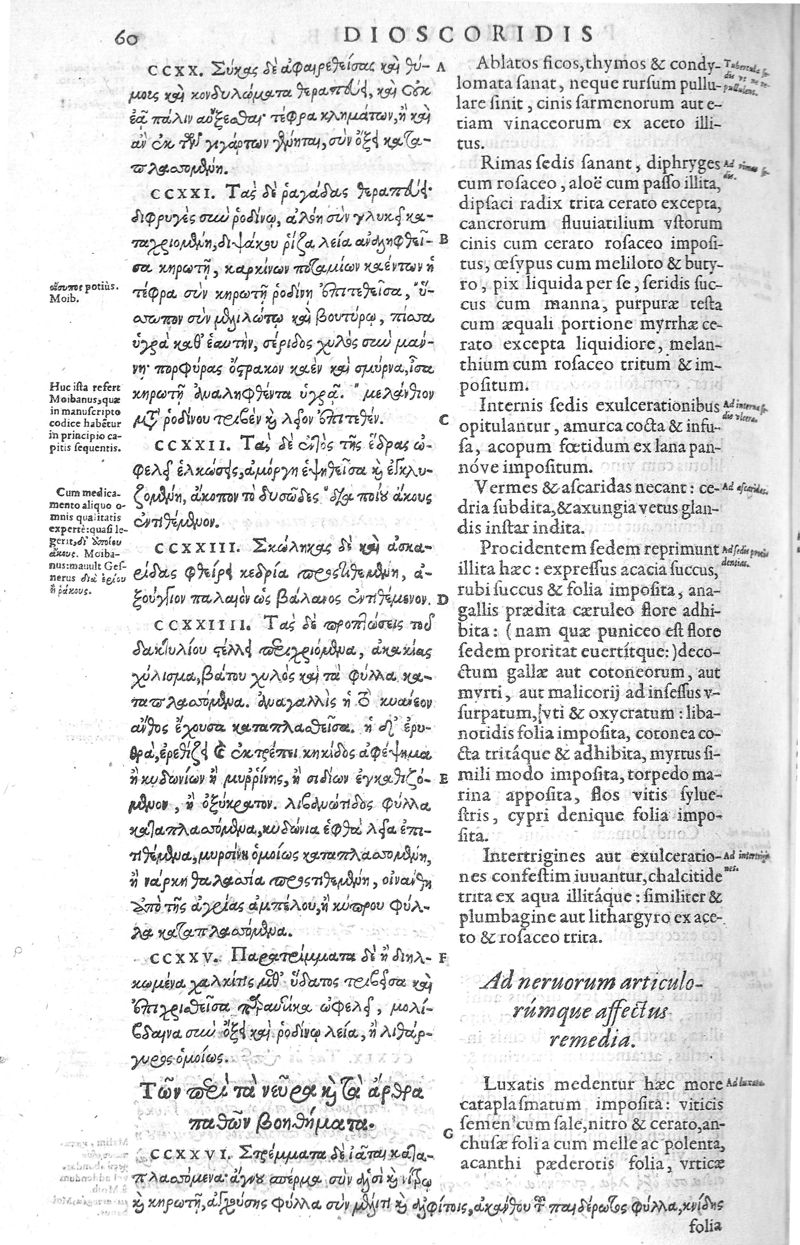 60
DIOSCORIDIS
CCXX. Σύκας δὲ ἀφαιρεθείσας καὶ θύ-
μους καὶ κονδυλώματα θεραπεύει, καὶ οὐκ
ἐᾷ πάλιν αὔξεσθαι τέφρα κλημάτων, ἢ καὶ
ἂν ἐκ τῶν γιγάρτων γένηται, σὺν ὄξει κατα-
πλασσομένη.
CCXXI. Τὰς δὲ ῥαγάδας θεραπεύει·
διφρυγὲς σὺν ῥοδίνῳ, ἀλόη σὺν γλυκεῖ κα-
ταχριομένη, διψάκου ῥίζα λεία ἀναληφθεῖ-
σα κηρωτῇ, καρκίνων ποταμίων καέντων ἡ
τέφρα σὺν κηρωτῇ ῥοδίνῃ ἐπιτεθεῖσα, ὕ-
σωπον σὺν μελιλώτῳ καὶ βουτύρῳ, πίσσα
ὑγρὰ καθ' ἑαυτὴν, σέριδος χυλὸς σὺν μάν-
νῃ· πορφύρας ὄστρακον καὲν καὶ σμύρνα, ἴσα
κηρωτῇ ἀναληφθέντα ὑγρᾷ. μελάνθιον
μετὰ ῥοδίνου τριβὲν καὶ λεῖον ἐπιτεθέν.
CCXXII. Τὰς δὲ ἐντὸς τῆς ἕδρας ὠ-
φελεῖ ἑλκώσεις, ἀμόργη ἑψηθεῖσα καὶ ἐγκλυ-
ζομένη, ἄκοπον τὸ δυσῶδες διὰ ποίου ἄκους
ἐντιθέμενον.
CCXXIII. Σκώληκας δὲ καὶ ἀσκα-
ρίδας φθείρει κεδρία προστιθεμένη, ἀ-
ξούγγιον παλαιὸν ὡς βάλανος ἐντιθέμενον.
CCXXIIII. Τὰς δὲ προπτώσεις τοῦ
δακτυλίου στέλλει περιχριόμενα, ἀκακίας
χύλισμα, βάτου χυλὸς καὶ τὰ φύλλα κα-
ταπλασσόμενα. ἀναγαλλὶς ἡ τὸ κυάνεον
ἄνθος ἔχουσα καταπλασθεῖσα. ἡ δ' ἐρυ-
θρὰ, ἐρεθίζει καὶ ἐκτρέπει κηκίδος ἀφέψημα
ἢ κυδωνίων ἢ μυρρίνης, ἢ σιδίων ἐγκαθιζό-
μενον, ἢ ὀξύκρατον. λιβανωτίδος φύλλα
καταπλασσόμενα, κυδώνια ἑφθὰ λεῖα ἐπι-
τιθέμενα, μυρσίνη ὁμοίως καταπλασσομένη,
ἢ νάρκη θαλασσία προστιθεμένη, οἰνάνθη
ἀπὸ τῆς ἀγρίας ἀμπέλου, ἢ κύπρου φύλ-
λα καταπλασσόμενα.
CCXXV. Παρατρίμματα δὲ ἢ διηλ-
κωμένα χαλκῖτις μεθ' ὕδατος τριβεῖσα καὶ
ἐπιχρισθεῖσα παραυτίκα ὠφελεῖ, μολί-
βδαινα σὺν ὄξει καὶ ῥοδίνῳ λεία, ἢ λιθάρ-
γυρος ὁμοίως.
Τῶν περὶ τὰ νεῦρα καὶ τὰ ἄρθρα
παθῶν βοηθήματα.
CCXXVI. Στρέμματα δὲ ἰᾶται κατα-
πλασσόμενα· ἄγνου σπέρμα σὺν ἁλσὶ καὶ νίτρῳ
καὶ κηρωτῇ, ἀγχούσης φύλλα σὺν μέλιτι καὶ ἀλφίτοις, ἀκάνθου τοῦ παιδέρωτος φύλλα, κνίδης
οἴσυπος potius.
Moib.
Huc ista refert
Moibanus, quæ
in manuscripto
codice habẽtur
in principio ca-
pitis sequentis.
Cum medica-
mento aliquo o-
mnis qualitatis
expertè: quasi le-
gerit, δι' ἀποίου
ἄκους. Moiba-
nus: mauult Ges-
nerus διὰ ἐρίου
ἢ ῥάκους.
A
B
C
D
E
F
G
Ablatos ficos, thymos & condy-
lomata sanat, neque rursum pullu-
lare sinit, cinis sarmenorum aut e-
tiam vinaceorum ex aceto illi-
tus.
Rimas sedis sanant, diphryges
cum rosaceo, aloë cum passo illita,
dipsaci radix trita cerato excepta,
cancrorum fluuiatilium vstorum
cinis cum cerato rosaceo imposi-
tus, œsypus cum meliloto & buty-
ro, pix liquida per se, seridis suc-
cus cum manna, purpuræ testa
cum æquali portione myrrhæ ce-
rato excepta liquidiore, melan-
thium cum rosaceo tritum & im-
positum.
Internis sedis exulcerationibus
opitulantur, amurca cocta & infu-
sa, acopum fœtidum ex lana pan-
nóve impositum.
Vermes & ascaridas necant: ce-
dria subdita, & axungia vetus glan-
dis instar indita.
Procidentem sedem reprimunt
illita hæc: expressus acacia succus,
rubi succus & folia imposita, ana-
gallis prædita cæruleo flore adhi-
bita: (nam quæ puniceo est flore
sedem proritat euertítque:) deco-
ctum gallæ aut cotoneorum, aut
myrti, aut malicorij ad insessus v-
surpatum, vti & oxycratum: liba-
notidis folia imposita, cotonea co-
cta tritáque & adhibita, myrtus si-
mili modo imposita, torpedo ma-
rina apposita, flos vitis sylue-
stris, cypri denique folia impo-
sita.
Intertrigines aut exulceratio-
nes confestim iuuantur, chalcitide
trita ex aqua illitáque: similiter &
plumbagine aut lithargyro ex ace-
to & rosaceo trita.
Ad neruorum articulo-
rúmque affectus
remedia.
Luxatis medentur hæc more
cataplasmatum imposita: viticis
semen cum sale, nitro & cerato, an-
chusæ folia cum melle ac polenta,
acanthi pæderotis folia, vrticæ
folia
Ad rimas se-
dis.
Ad interna se-
dis vlcera.
Ad ascaridas.
Ad sedis proci-
dentias.
Ad intertrigi-
nes.
Ad luxata.